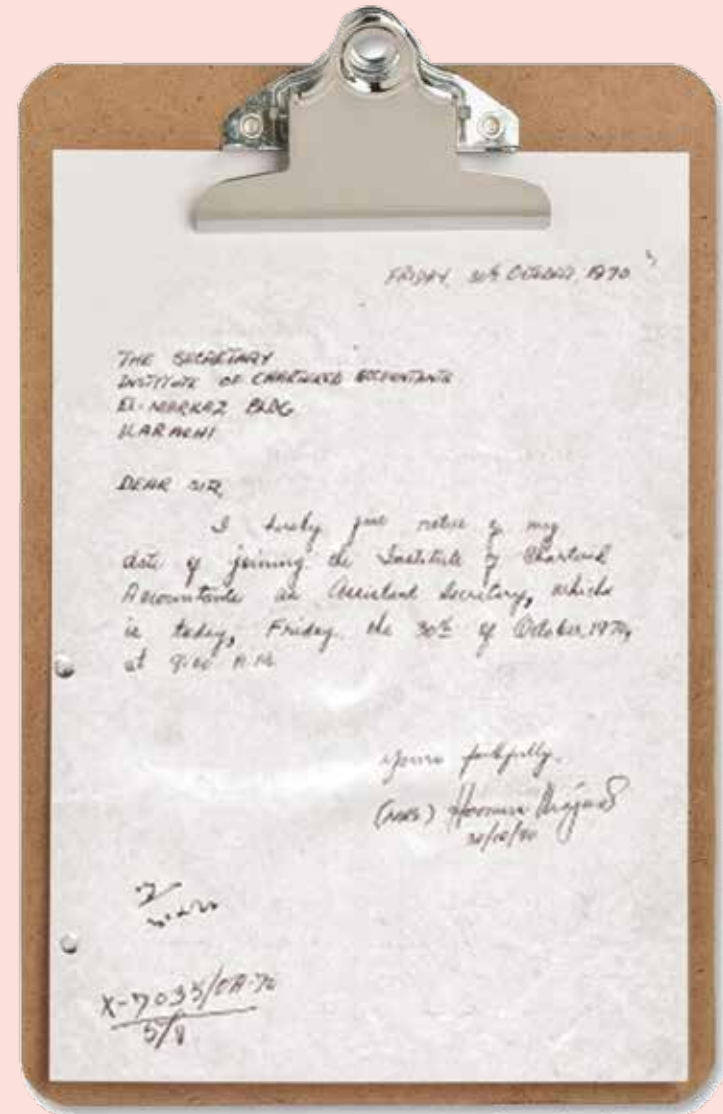 FRIDAY, 30th OCTOBER, 1970
THE SECRETARY
INSTITUTE OF CHARTERED ACCOUNTANTS
EL-MARKAZ BLDG
KARACHI
DEAR SIR,
I hereby give notice of my
date of joining the Institute of Chartered
Accountants as Assistant Secretary, which
is today, Friday the 30th of October, 1970,
at 9:00 A.M.
Yours faithfully,
(MRS)
30/10/70
X-7035/